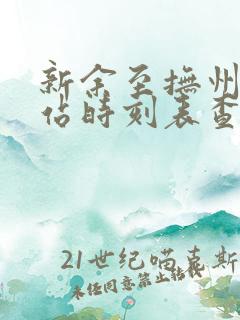 新余至抚州
站时刻表查
21世纪喵喜斯
未经同意禁止转载